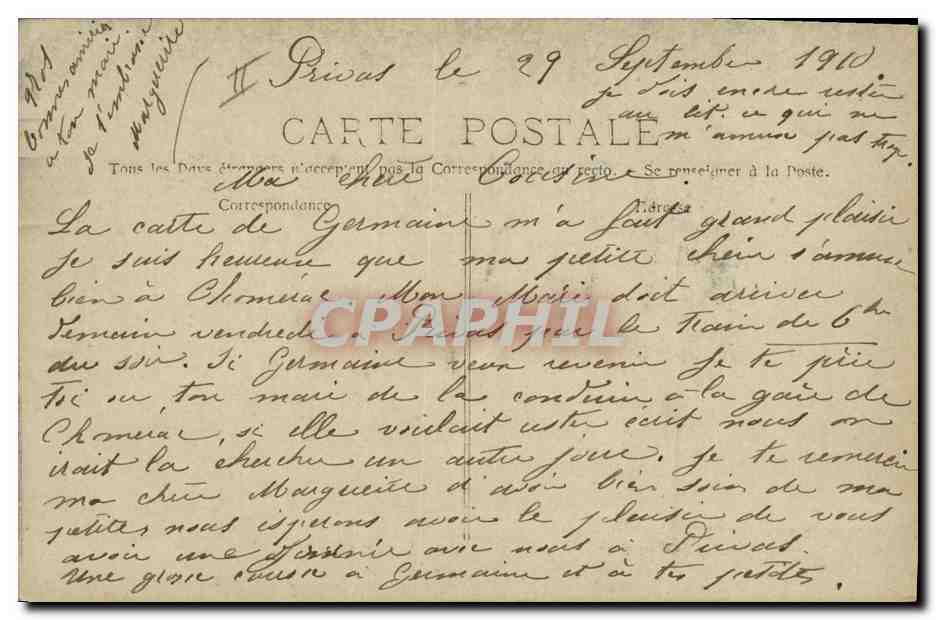 II Privas le 29 Septembre 1910.
je dois encore rester
au lit. ce qui ne
m'amuse pas trop.
CARTE POSTALE
Tous les Pays étrangers n'acceptent pas la Correspondance au recto. - Se renseigner à la Poste.
Ma chère Cousine.
Correspondance Adresse
La carte de Germaine m'a fait grand plaisir
Je suis heureuse que ma petite chérie s'amuse
bien à Chomérac Mon Mari doit arriver
demain vendredi à Privas par le train de 6h
du soir. Si Germaine veux revenir Je te prie
toi ou ton mari de la conduire à la gare de
Chomérac, si elle voulait rester écrit nous on
irait la chercher un autre jour. Je te remercie
ma chère Marguerite d'avoir bien soin de ma
petite, nous esperons avoir le plaisir de vous
avoir une Journée avec nous à Privas.
Une grosse caresse à Germaine et à tes petites.
gros
a ton mari
je t'embrasse
Marguerite
CPAPHIL